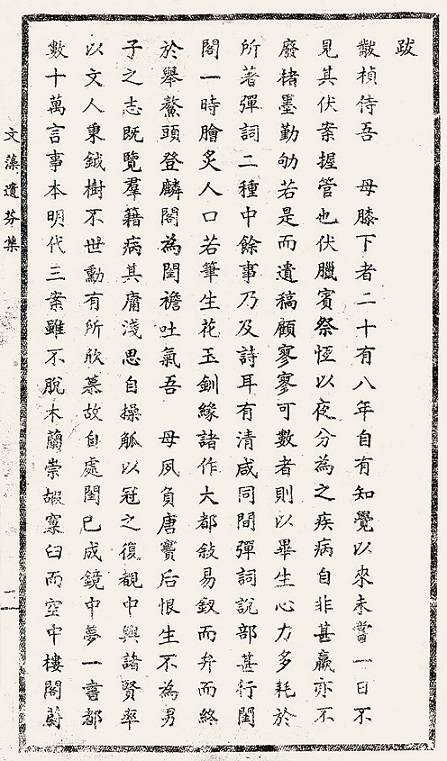 跋
黻楨侍吾　母膝下者二十有八年自有知覺以來未嘗一日不
見其伏案握管也伏臘賓祭恆以夜分為之疾病自非甚羸亦不
廢楮墨勤劬若是而遺稿顧寥寥可數者則以畢生心力多耗於
所著彈詞二種中餘事乃及詩耳有清咸同間彈詞說部甚行閨
閤一時膾炙人口若筆生花玉釧緣諸作大都敍易釵而弁而終
於舉鰲頭登麟閣為閨襜吐氣吾　母夙負唐竇后恨生不為男
子之志既覽羣籍病其庸淺思自操觚以冠之復覩中興諸賢率
以文人秉鉞樹不世勳有所欣慕故自處閨已成鏡中夢一書都
數十萬言事本明代三案雖不脫木蘭崇嘏窠臼而空中樓閣蔚
文藻遺芬集
二